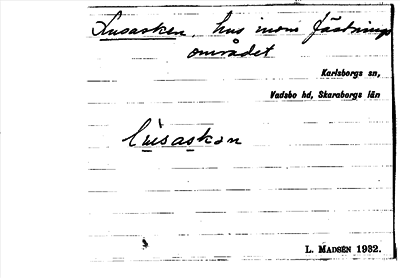 Lusasken, hus inom fästnings
området
Karlsborgs sn,
Vadsbo hd, Skaraborgs län
lùsaskan
L. MADSÉN 1932.